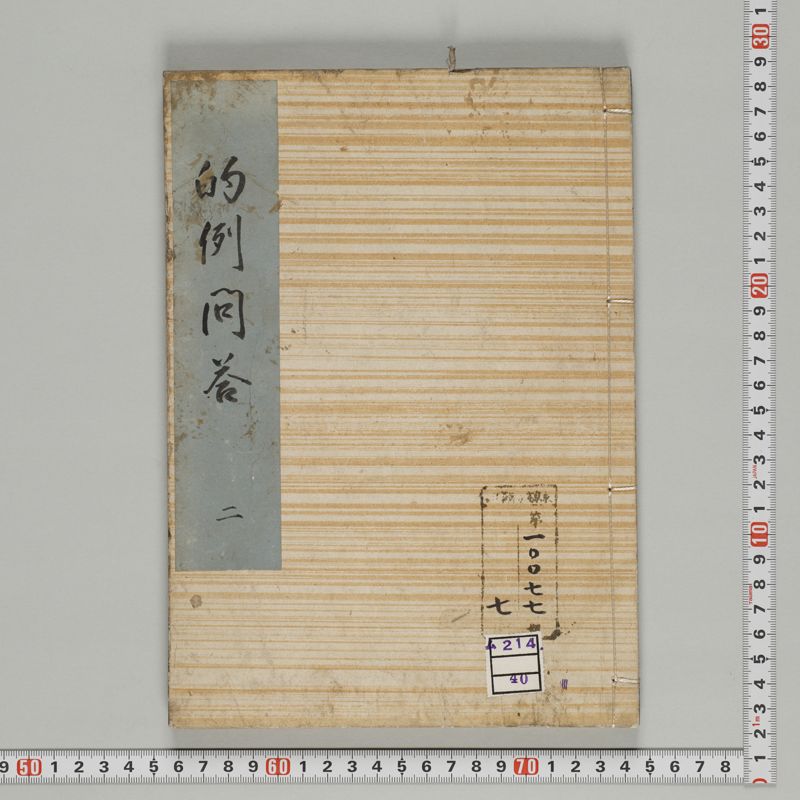 的例問答
二
第
一〇〇七七
七
214
40
JAPAN
1m
1 30 9 8 7 6 5 4 3 2 1 20 9 8 7 6 5 4 3 2 1 10 9 8 7 6 5 4 3 2 1
9 50 1 2 3 4 5 6 7 8 9 60 1 2 3 4 5 6 7 8 9 70 1 2 3 4 5 6 7 8